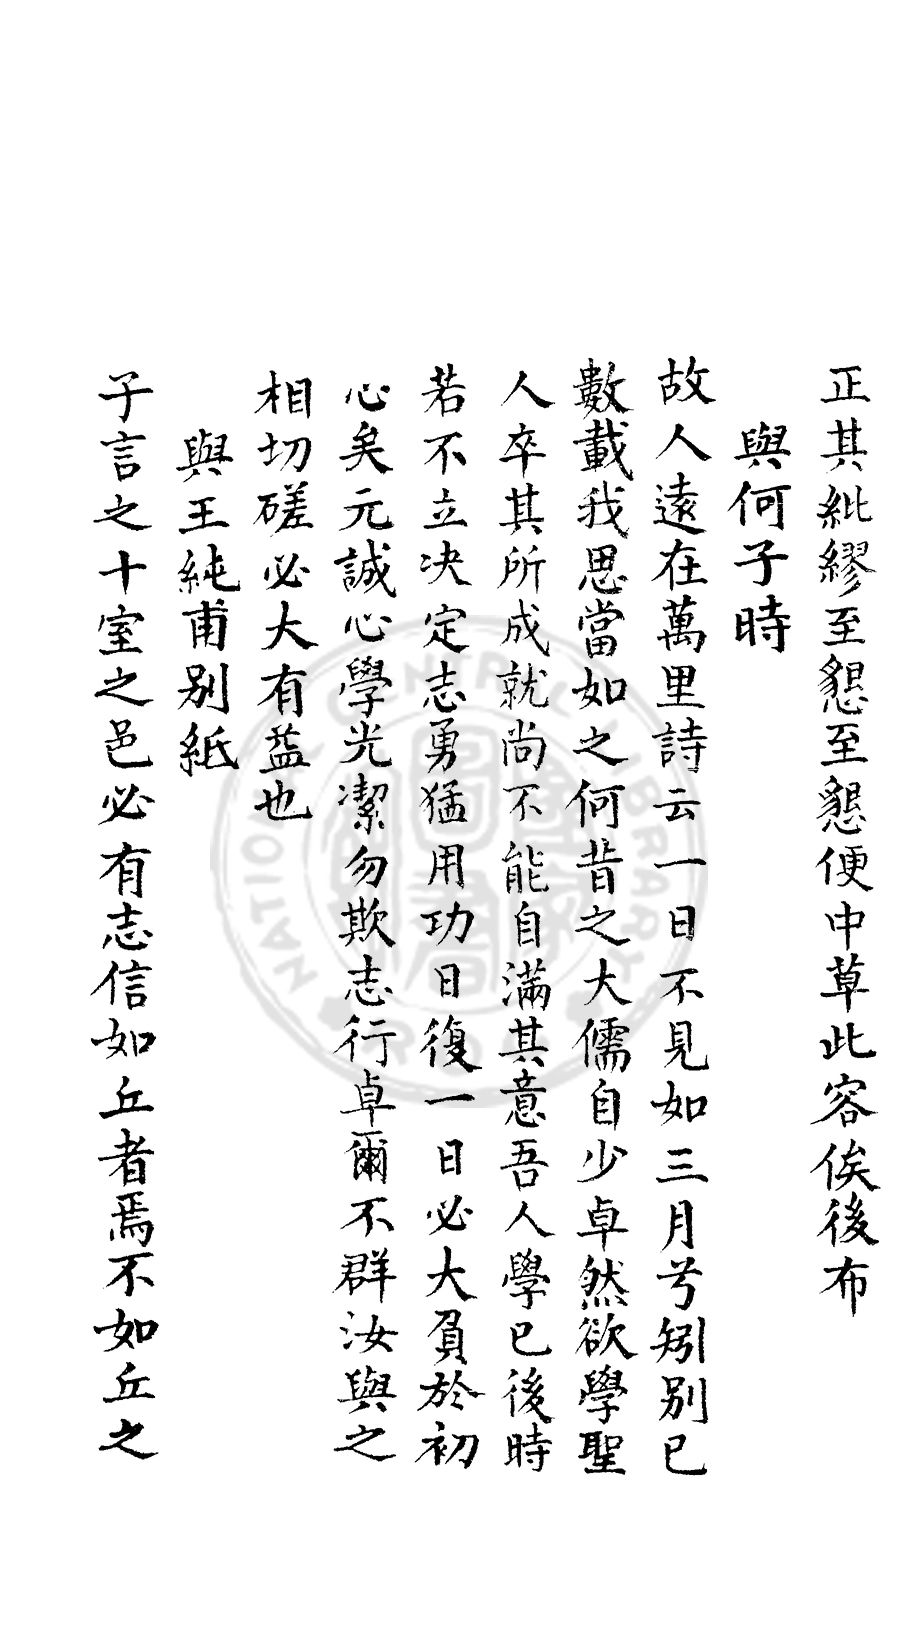 正其紕繆至懇至懇便中草此容俟後布
與何子時
故人遠在萬里詩云一日不見如三月兮矧別已
數載我思當如之何昔之大儒自少卓然欲學聖
人卒其所成就尚不能自滿其意吾人學已後時
若不立决定志勇猛用功日復一日必大負於初
心矣元誠心學光潔勿欺志行卓爾不群汝與之
相切磋必大有益也
與王純甫別紙
子言之十室之邑必有志信如丘者焉不如丘之
NATIONAL CENTRAL LIBRARY